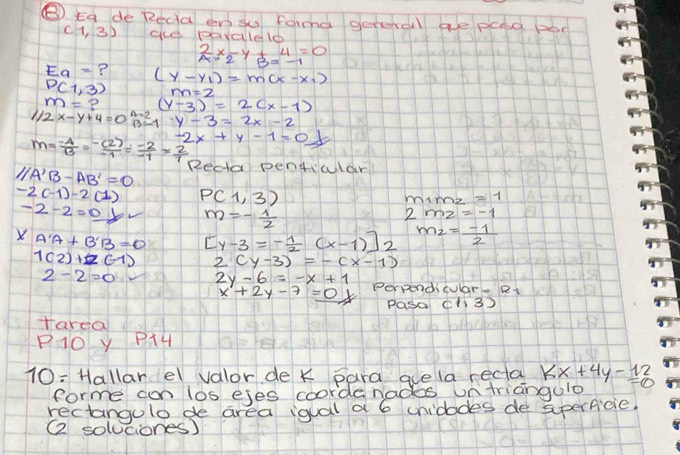 e) Eq de Recta en su forma general que pasa por
(1,3) que paralelo
2x - y + 4 = 0
A=2 B=-1
Eq = ? (y - y1) = m(x - x1)
P(1,3) m = 2
m = ? (y-3) = 2(x-1)
// 2x - y + 4 = 0 A=2 B=-1 y - 3 = 2x - 2
-2x + y - 1 = 0
m = -A/B = -(2)/-1 = -2/-1 = 2/1
Recta penticular
// A'B - AB' = 0
-2(-1) - 2(1) P(1,3) m1m2 = 1
-2 - 2 = 0 ✓ m = -1/2 2m2 = -1
m2 = -1/2
x A'A + B'B = 0 [y-3 = -1/2 (x-1)]2
1(2)+2(-1) 2(y-3) = -(x-1)
2 - 2 = 0 ✓ 2y - 6 = -x + 1
x + 2y - 7 = 0 Perpendicular = P1
Pasa (1,3)
tarea
P10 y P14
10= Hallar el valor de K para que la recta Kx + 4y - 12 = 0
forme con los ejes coordenados un triángulo
rectangulo de área igual a 6 unidades de superficie.
(2 soluciones)